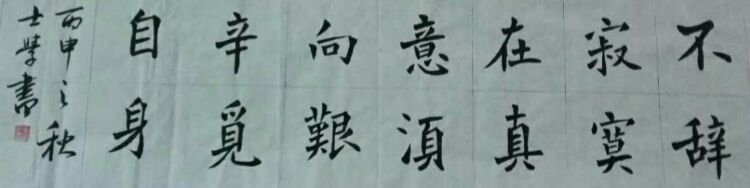 不辞
寂寞
在真
意須
向艱
辛覓
自身
丙申之秋
士学書